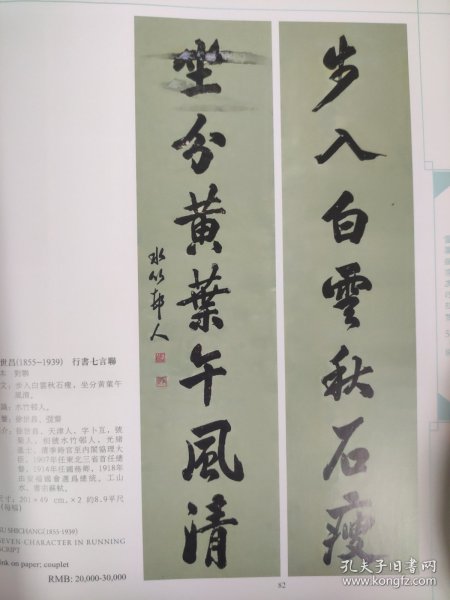 步入白雲秋石瘦
坐分黄葉午風清
水竹邨人
世昌(1855-1939) 行書七言聯
本 對聯
文:步入白雲秋石瘦,坐分黄葉午
風清。
識:水竹邨人。
徐世昌、
介:徐世昌,天津人,字卜五,號
菊人,别號水竹邨人,光緒
進士,清季時官至内閣協理大
臣,1907年任東北三省首任總
督,1914年任國務卿,1918年
由安福國會選爲總統。工山
水、書宗蘇軾。
尺寸:201×49 cm.×2 約8.9平尺
(每幅)
XU SHICHANG(1855-1939)
SEVEN-CHARACTER IN RUNNING
SCRIPT
ink on paper; couplet
RMB: 20,000-30,000
82
孔夫子旧书网
kongfz.com